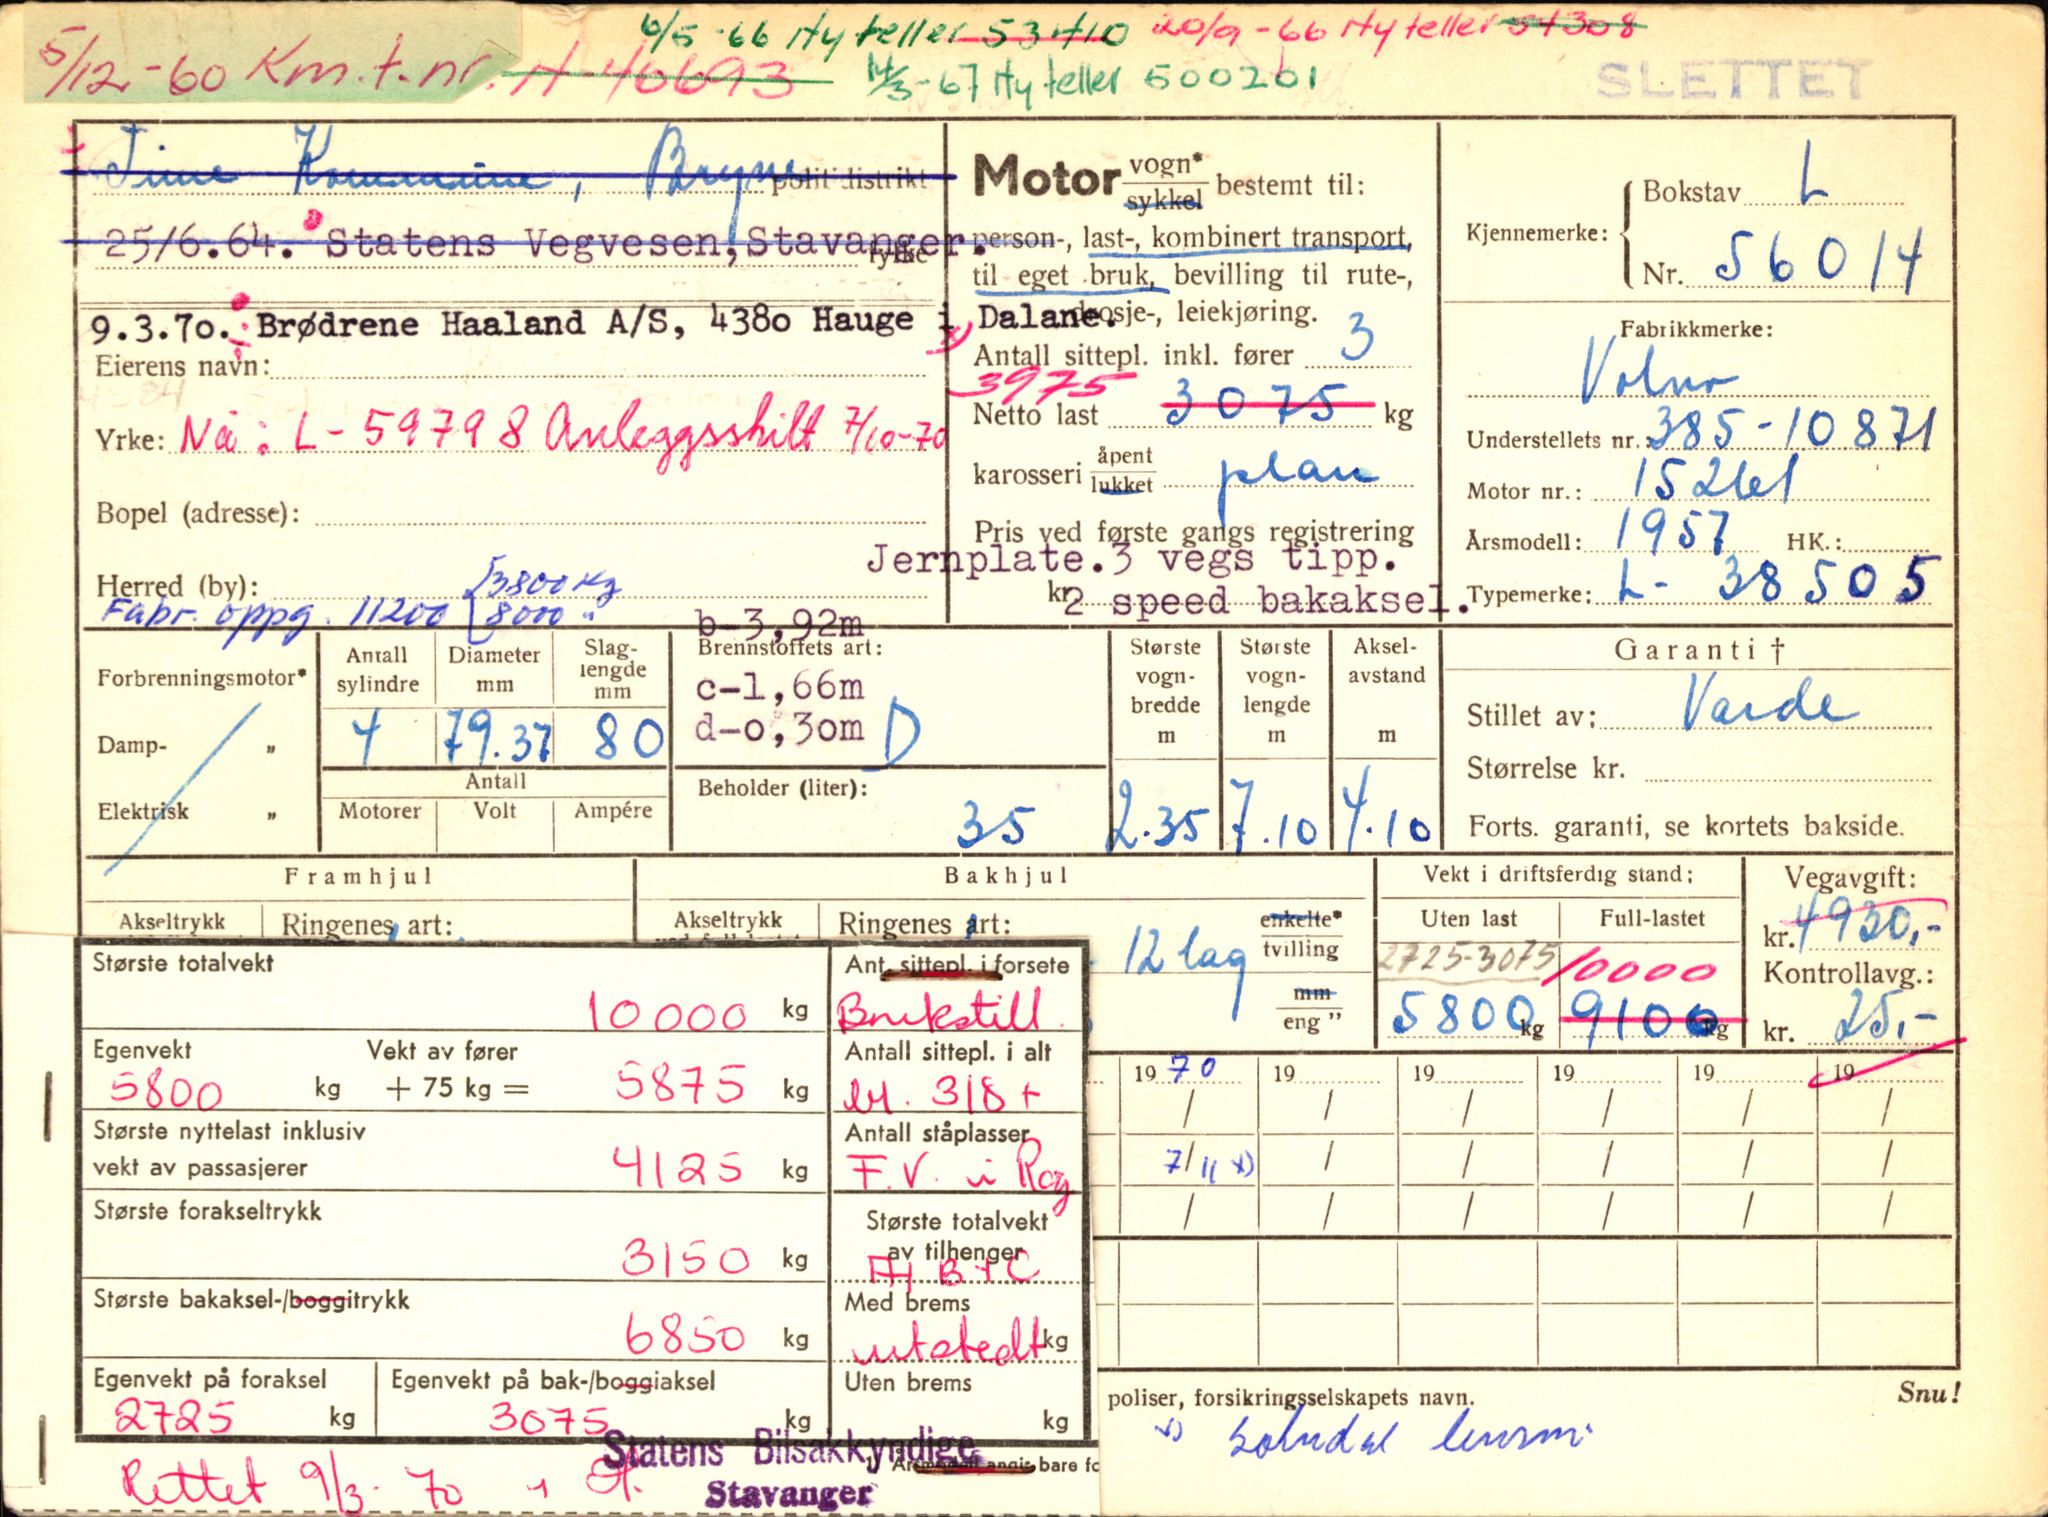 6/5-66 Ny teller 53410 20/9-66 Ny teller 54308
5/12-60 Km.t.nr. A-40693 14/3-67 Ny teller 500201
SLETTET
Time Kommune, Bryne politidistrikt
25/6.64. Statens Vegvesen, Stavanger.
9.3.70. Brødrene Haaland A/S, 4380 Hauge i Dalane.
Eierens navn:
Yrke: Nå: L-59798 Anleggsskilt 7/10-70
Bopel (adresse):
Herred (by):
Fabr. oppg. 11200 3800 kg
8000 "
Motor vogn* sykkel bestemt til:
person-, last-, kombinert transport,
til eget bruk, bevilling til rute-,
drosje-, leiekjøring.
Antall sittepl. inkl. fører 3
3975
Netto last 3075 kg
karosseri åpent lukket plan
Pris ved første gangs registrering
Jernplate. 3 vegs tipp.
kr.
2 speed bakaksel.
Kjennemerke: Bokstav L
Nr. 56014
Fabrikkmerke:
Volvo
Understellets nr.: 385-10871
Motor nr.: 15261
Årsmodell: 1957 HK.:
Typemerke: L-38505
Forbrenningsmotor*
Damp- „
Elektrisk „
Antall sylindre 4
Diameter mm 79.37
Slaglengde mm 80
Antall
Motorer Volt Ampére
b-3,92m
Brennstoffets art:
c-1,66m
d-0,30m D
Beholder (liter): 35
Største vognbredde m 2.35
Største vognlengde m 7.10
Akselavstand m 4.10
Garanti †
Stillet av: Varde
Størrelse kr.
Forts. garanti, se kortets bakside.
Framhjul
Akseltrykk Ringenes art:
Bakhjul
Akseltrykk Ringenes art:
12 lag
enkelte* tvilling
mm eng"
Vekt i driftsferdig stand:
Uten last Full-lastet
2725-3075 10000
5800 kg 9100 kg
Vegavgift:
kr. 4930,-
Kontrollavg.:
kr. 25,-
Største totalvekt
10000 kg
Egenvekt Vekt av fører
5800 kg + 75 kg = 5875 kg
Største nyttelast inklusiv
vekt av passasjerer 4125 kg
Største forakseltrykk
3150 kg
Største bakaksel-/boggitrykk
6850 kg
Egenvekt på foraksel
2725 kg
Egenvekt på bak-/boggiaksel
3075 kg
Ant. sittepl. i forsete
Brukstill.
Antall sittepl. i alt
bl. 318 +
Antall ståplasser
F.V. i Rog
Største totalvekt
av tilhenger
A, B + C
Med brems
utstedt kg
Uten brems
kg
19 70 19 19 19 19 19
7/11 x)
poliser, forsikringsselskapets navn.
Snu!
Statens Bilsakkyndige
Stavanger
Rettet 9/3-70